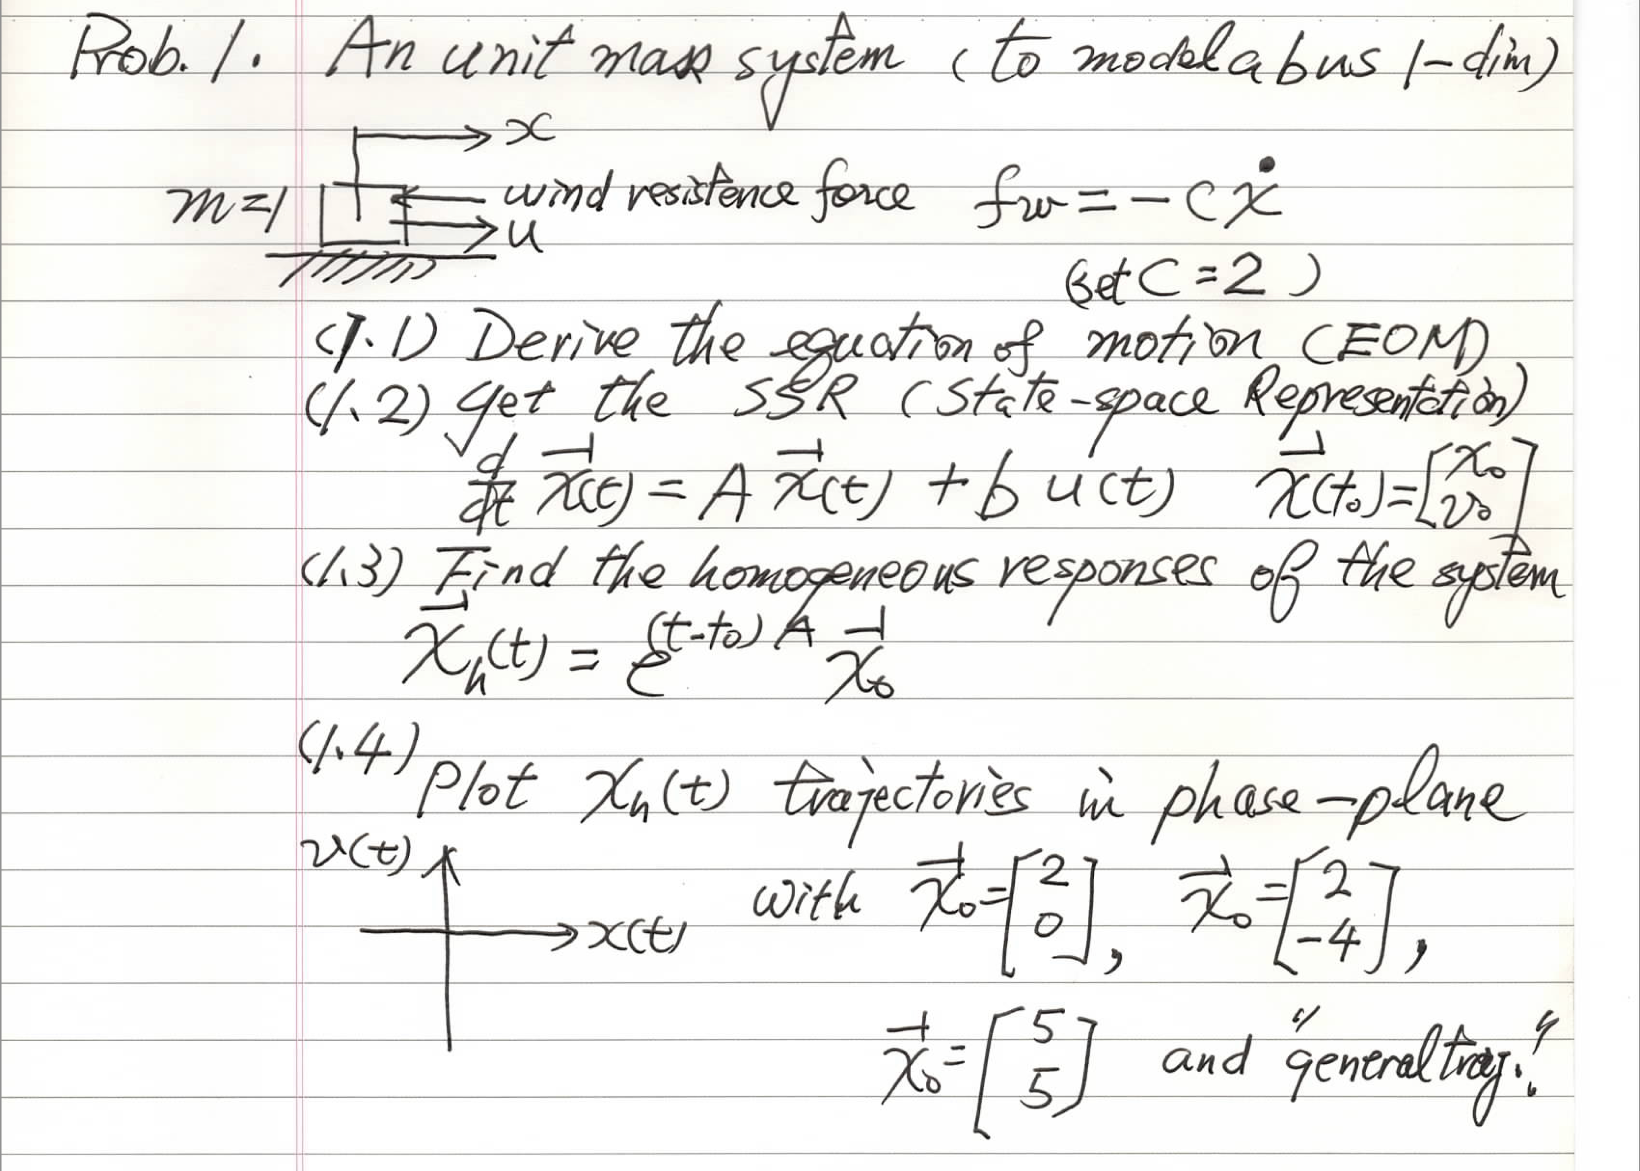 Prob. 1. An unit mass system (to model a bus 1-dim)
x
m=1 wind resistence force fw = -c ẋ
u
(set C = 2)
(1.1) Derive the equation of motion (EOM)
(1.2) get the SSR (State-space Representation)
d/dt x⃗(t) = A x⃗(t) + b u(t) x⃗(t₀) = [x₀ v₀]
(1.3) Find the homogeneous responses of the system
x⃗ₕ(t) = e^(t-t₀)A x⃗₀
(1.4)
Plot xₕ(t) trajectories in phase-plane
v(t)
with x⃗₀ = [2 0], x⃗₀ = [2 -4],
x(t)
x⃗₀ = [5 5] and "general traj.!"